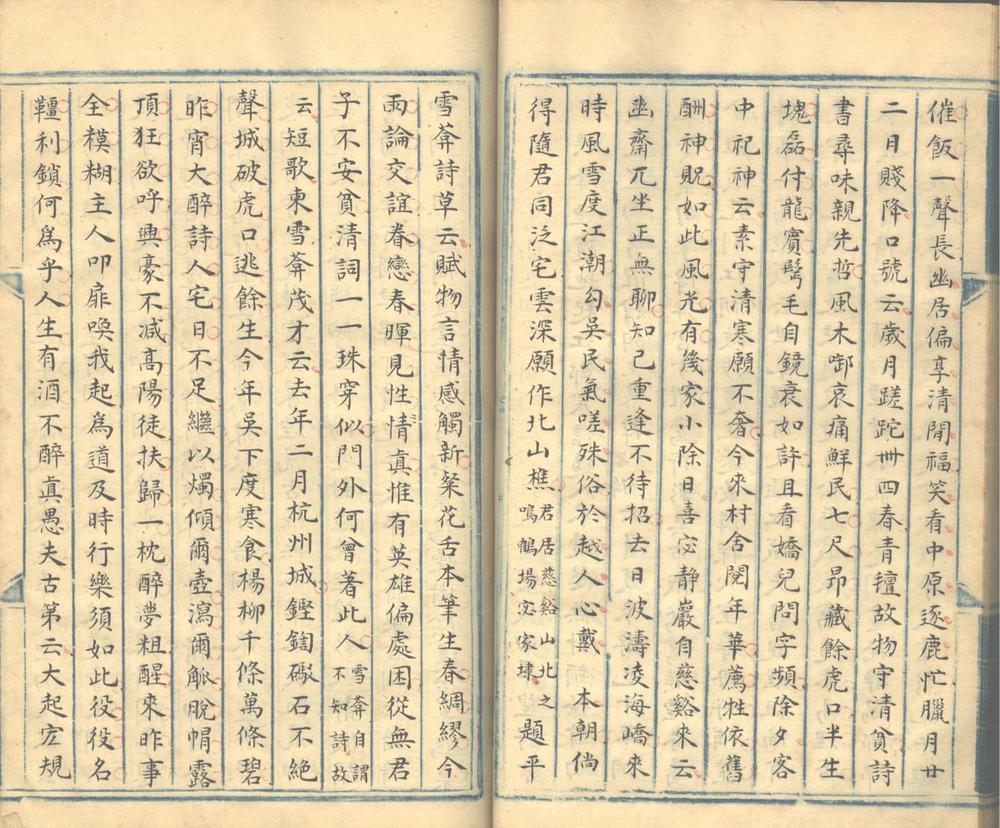 催飯一聲長幽居偏享清閒福笑看中原逐鹿忙臘月廿
二日賤降口號云歲月蹉跎卌四春青氊故物守清貧詩
書尋味親先哲風木啣哀痛鮮民七尺昂藏餘虎口半生
塊磊付龍賓鬂毛自鏡衰如許且看嬌兒問字頻除夕客
中祀神云素守清寒願不奢今來村舍閱年華薦牲依舊
酬神貺如此風光有幾家小除日喜宓静巖自慈谿來云
幽齋兀坐正無聊知己重逢不待招去日波濤凌海嶠來
時風雪度江潮勾吳民氣嗟殊俗於越人心戴 本朝倘
得隨君同泛宅雲深願作北山樵君居慈谿山北之鳴鶴場宓家埭題平
雪葊詩草云賦物言情感觸新粲花舌本筆生春綢繆今
雨論交誼眷戀春暉見性情眞惟有英雄偏處困從無君
子不安貧清詞一一珠穿似門外何曾著此人雪葊自謂不知詩故
云短歌東雪葊茂才云去年二月杭州城鏗鍧礮石不絕
聲城破虎口逃餘生今年吳下度寒食楊柳千條萬條碧
昨宵大醉詩人宅日不足繼以燭傾爾壺瀉爾觚脫帽露
頂狂欲呼興豪不減高陽徒扶歸一枕醉夢粗醒來昨事
全糢糊主人叩扉喚我起為道及時行樂須如此役役名
韁利鎖何為乎人生有酒不醉眞愚夫古第云大起宏規